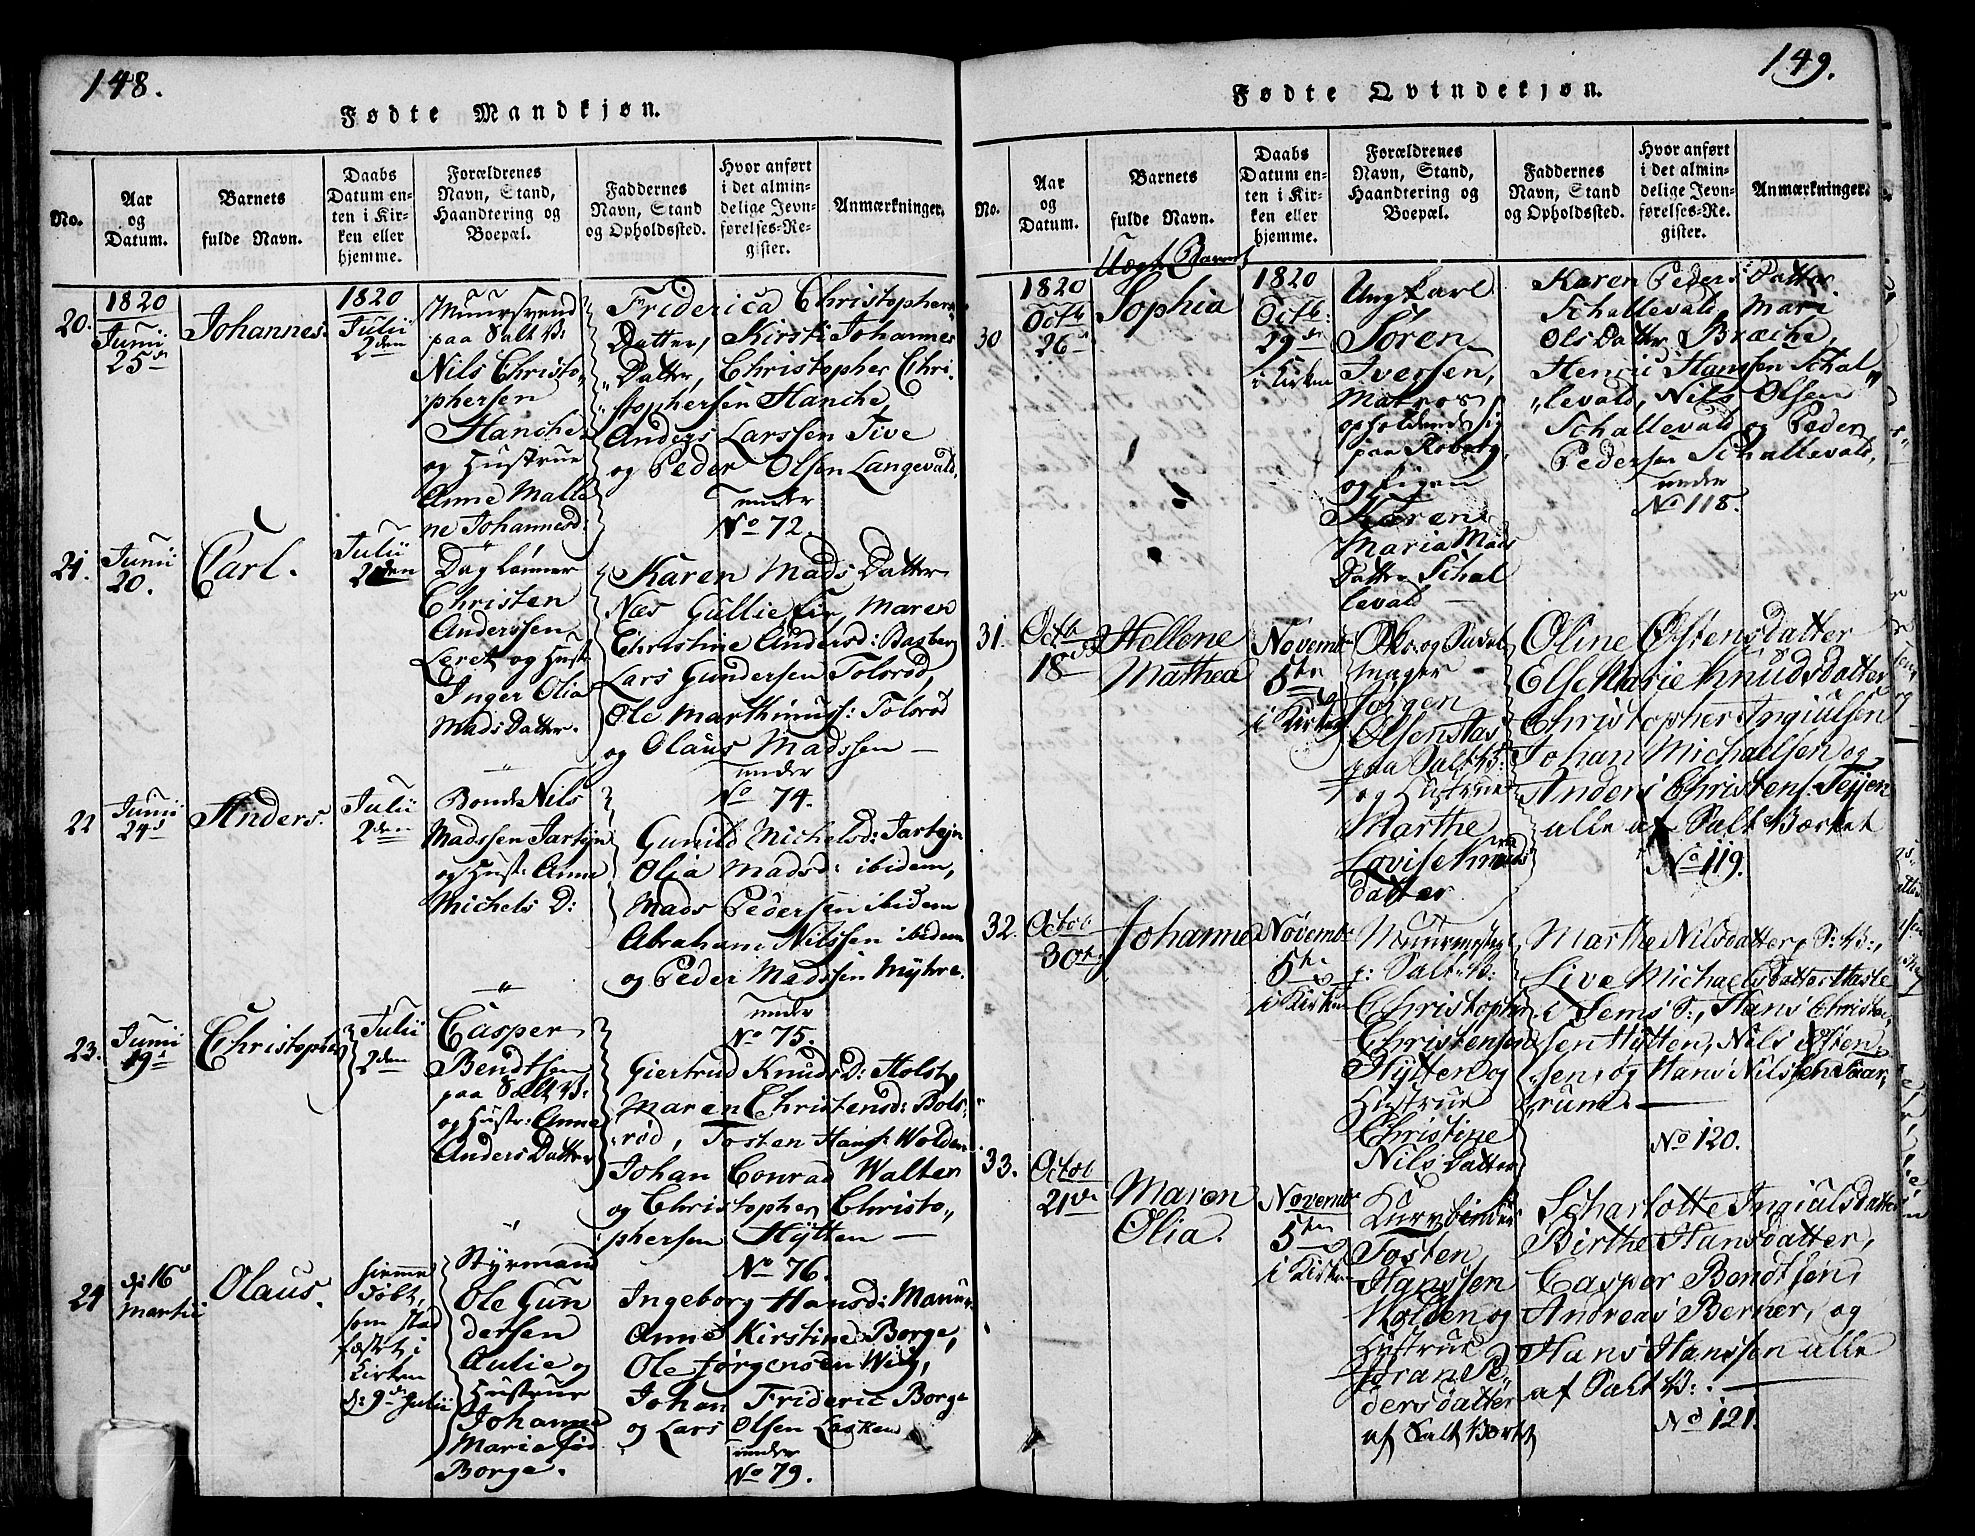 148.
Fødte Mandkjøn.
No.
Aar og Datum.
Barnets fulde Navn.
Daabs Datum enten i Kirken eller hjemme.
Forældrenes Navn, Stand, Haandtering og Boepæl.
Faddernes Navn, Stand og Opholdssted.
Hvor anført i det almindelige Jevnførelses-Register.
Anmærkninger.
20.
1820
Junii
25de
Johannes.
1820
Julii
2den
Muursvend
paa Salt V:
Nils Christo„
phersen
Hanche
og Hustrue
Anne Malle
ne Johannesd:
Friderica Christophers
Datter, Kirsti Johannes
„Datter, Christopher Chri„
„stophersen Hanche
Anders Larssen Tive
og Peder Olsen Langevald,
under
No 72.
21.
Junii
20.
Carl.
Julii
2den
Daglønner
Christen
Anderssen
Leret og Hust:
Inger Olia
Mads Datter.
Karen Mads Datter
Næs Gullie, Maren
Christine Andersd: Basberg
Lars Gundersen Tolsrød,
Ole Marthinuss: Tolsrød
og Olaus Madssen —
under
No 74.
22
Junii
24de
Anders.
Julii
2den
Bonde Nils
Madssen Jarteyn
og Hust: Anne
Michels D:
Gunild Michelsd: Jarteyn
Olia Madsd: ibidem,
Mads Pedersen ibidem
Abraham Nilssen ibidem
og Peder Madssen Myhre.
under
No 75.
23.
Junii
19de
Christopher
Julii
2den
Casper
Bendtsen
paa Salt V:
og Hustr: Anne
Anders Datter
Giertrud Knuds D: Holst,
Maren Christensd: Bols„
„rød, Tosten Hanss: Wolden
Johan Conrad Walter
og Christopher Christo„
phersen Hÿtten —
No 76.
24
d: 16de
Martii
Olaus.
hiemme
døbt,
som stad
fæstet i
Kirken
d: 9de Julii
Styrmand
Ole Gun
dersen
Aulie og
Hustrue
Johanne
Maria fød
Borge.
Ingeborg Hansd:
Anne Kirstine Borge,
Ole Jørgensen Wiig,
Johan Frideric Borge
og Lars Olsen Lasken
under
No 79.
149.
Fødte Qvindekjøn.
No.
Aar og Datum.
Barnets fulde Navn.
Daabs Datum enten i Kirken eller hjemme.
Forældrenes Navn, Stand, Haandtering og Boepæl.
Faddernes Navn, Stand og Opholdssted.
Hvor anført i det almindelige Jevnførelses-Register.
Anmærkninger.
30
1820
Octb
26de
Uægte Barn
Sophia
1820
Octb:
29de
i Kirken
Ungkarl
Søren
Iversen,
Matros
opholdende sig
paa Roberg,
og Pigen
Karen
Maria Mads
Datter Schal
levald —
Karen Peders Datter
Schallevald, Mari
Ols Datter Bræche,
Henric Hanssen Schal„
„levald, Nils Olsen
Schallevald og Peder
Pedersen Schallevald,
under
No 118.
31.
Octb
18de
Hellene
Mathea
Novembr
5te
i Kirken
Skoe og Sadel
mager
Jørgen
Olsen
paa Salt V:
og Hustrue
Marthe
Lovise Knuds
datter
Oline Østensdatter
Else Marie Knudsdatter
Christopher Ingiulsen
Johan Michaelsen og
Anders Christens: Teyen
alle af Salt Værket
No 119.
32.
Octob
30te
Johanne
Novembr
5te
i Kirken
Muurmester
p: Salt V:
Christopher
Christensen
Hytten og
Hustrue
Christine
Nils Datter
Marthe Nilsdatter, S: V:,
Live Michaelsdatter Hasle
i Sems S:, Hans Christen„
sen Hytten, Nils Østen„
„sen, og Hans Nilssen Saar„
„rum. —
No 120.
33.
Octob
21de
Maren
Olia.
Novembr
5te
i Kirken
Kurvbinder
Tosten
Hanssen
Wolden og
Hustrue
Jøran Pe„
dersdatter
af Salt Verket
Scharlotte Ingiulsdatter
Birthe Hansdatter,
Casper Bendtsen,
Andreas Berner, og
Hans Hanssen alle
af Salt V:. —
No 121.